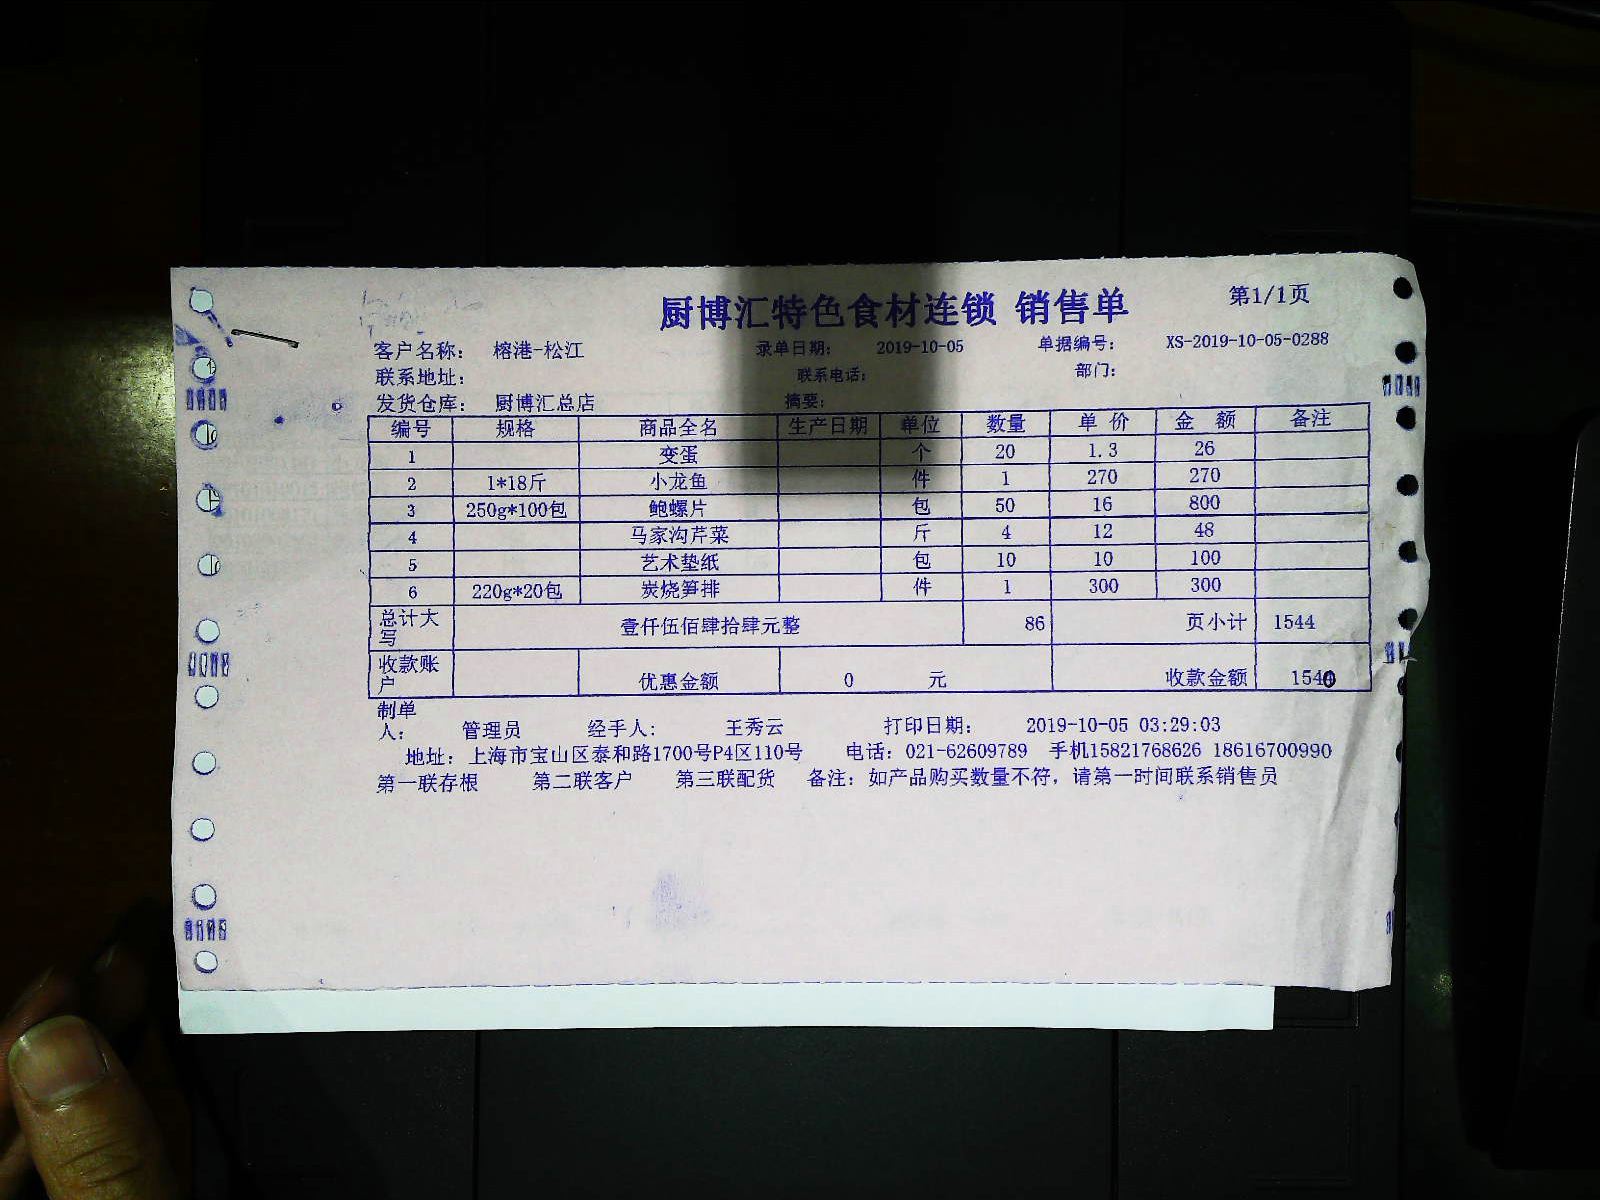 厨博汇特色食材连锁 销售单 第1/1页
客户名称： 榕港-松江 录单日期： 2019-10-05 单据编号： XS-2019-10-05-0288
联系地址： 联系电话： 部门：
发货仓库： 厨博汇总店 摘要：
编号 规格 商品全名 生产日期 单位 数量 单 价 金 额 备注
1 变蛋 个 20 1.3 26
2 1*18斤 小龙鱼 件 1 270 270
3 250g*100包 鲍螺片 包 50 16 800
4 马家沟芹菜 斤 4 12 48
5 艺术垫纸 包 10 10 100
6 220g*20包 炭烧笋排 件 1 300 300
总计大写 壹仟伍佰肆拾肆元整 86 页小计 1544
收款账户 优惠金额 0 元 收款金额 1540
制单人： 管理员 经手人： 王秀云 打印日期： 2019-10-05 03:29:03
地址：上海市宝山区泰和路1700号P4区110号 电话：021-62609789 手机15821768626 18616700990
第一联存根 第二联客户 第三联配货 备注：如产品购买数量不符，请第一时间联系销售员